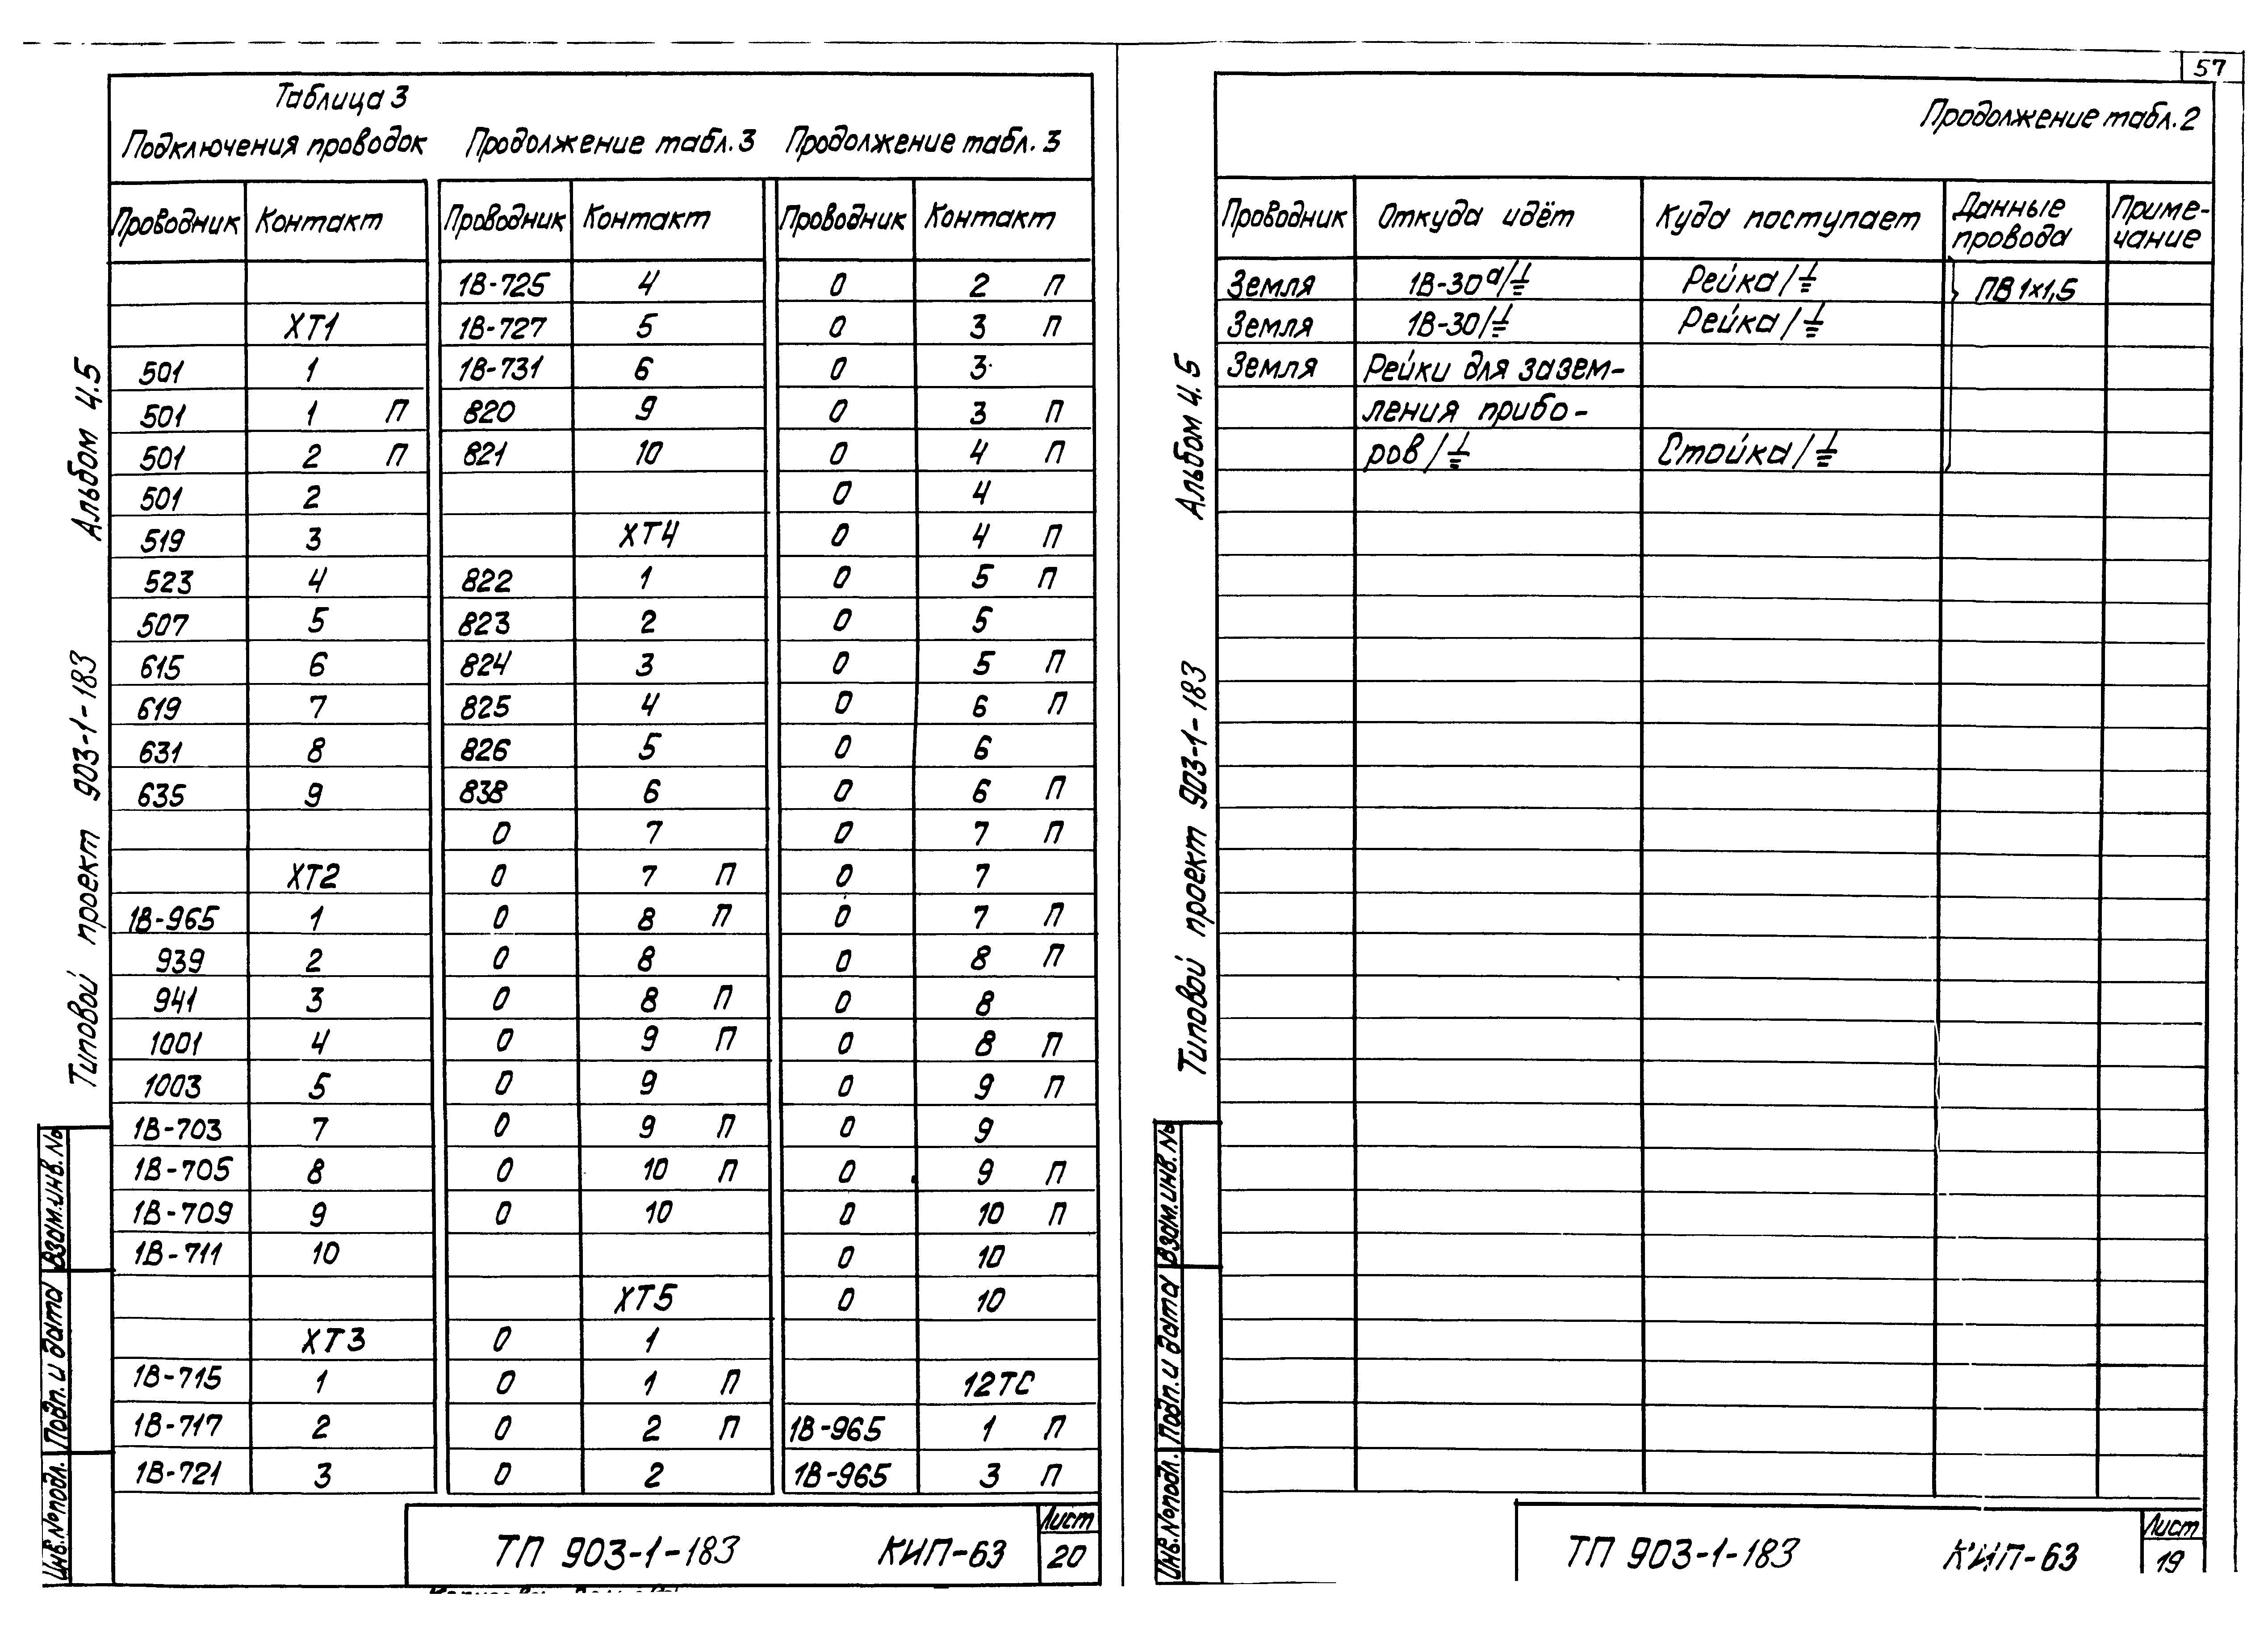 57
Таблица 3
Подключения проводок Продолжение табл. 3 Продолжение табл. 3
Проводник Контакт Проводник Контакт Проводник Контакт
1В-725 4 0 2 П
ХТ1 1В-727 5 0 3 П
501 1 1В-731 6 0 3
501 1 П 820 9 0 3 П
501 2 П 821 10 0 4 П
501 2 0 4
519 3 ХТ4 0 4 П
523 4 822 1 0 5 П
507 5 823 2 0 5
615 6 824 3 0 5 П
619 7 825 4 0 6 П
631 8 826 5 0 6
635 9 838 6 0 6 П
0 7 0 7 П
ХТ2 0 7 П 0 7
1В-965 1 0 8 П 0 7 П
939 2 0 8 0 8 П
941 3 0 8 П 0 8
1001 4 0 9 П 0 8 П
1003 5 0 9 0 9 П
1В-703 7 0 9 П 0 9
1В-705 8 0 10 П 0 9 П
1В-709 9 0 10 0 10 П
1В-711 10 0 10
ХТ5 0 10
ХТ3 0 1
1В-715 1 0 1 П 12ТС
1В-717 2 0 2 П 1В-965 1 П
1В-721 3 0 2 1В-965 3 П
ТП 903-1-183 КИП-63
Лист
20
Типовой проект 903-1-183 Альбом 4.5
Взам.инв.№
Подп. и дата
Инв.№подл.
Продолжение табл. 2
Проводник Откуда идёт Куда поступает Данные провода Приме-
чание
Земля 1В-30а/⏚ Рейка/⏚ ПВ 1×1,5
Земля 1В-30/⏚ Рейка/⏚
Земля Рейки для зазем-
ления прибо-
ров/⏚ Стойка/⏚
ТП 903-1-183 КИП-63
Лист
19
Типовой проект 903-1-183 Альбом 4.5
Взам.инв.№
Подп. и дата
Инв.№подл.